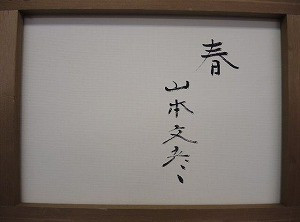 春
山本文彦